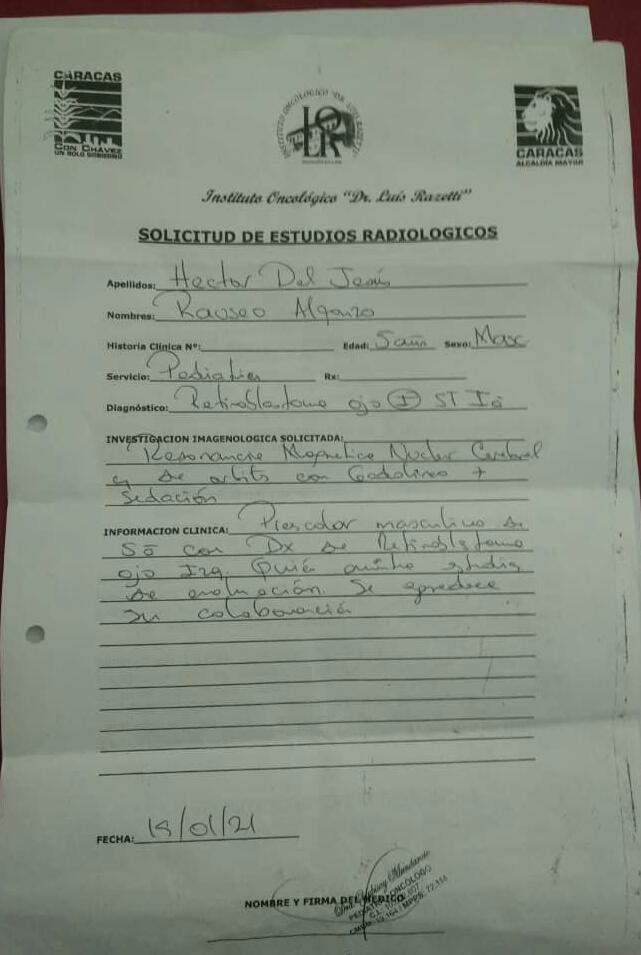 CARACAS
CON CHÁVEZ
UN SOLO GOBIERNO
INSTITUTO ONCOLOGICO "DR. LUIS RAZETTI"
IOLR
CARACAS
ALCALDÍA MAYOR
Instituto Oncológico "Dr. Luís Razetti"
SOLICITUD DE ESTUDIOS RADIOLOGICOS
Apellidos: Hector Del Jesús
Nombres: Rauseo Alfonzo
Historia Clínica Nº: Edad: 5 años Sexo: Masc
Servicio: Pediatria Rx:
Diagnóstico: Retinoblastoma ojo I ST Ia
INVESTIGACION IMAGENOLOGICA SOLICITADA:
Resonancia Magnetica Nuclear Cerebral
y de orbita con Gadolineo +
sedación
INFORMACION CLINICA: Prescolar masculino de
5a con Dx de Retinoblastoma
ojo Izq. estudio
de evaluación. Se agradece
su colaboración
FECHA: 18/01/21
NOMBRE Y FIRMA DEL MEDICO
Dra.
PEDIATRA ONCOLOGO